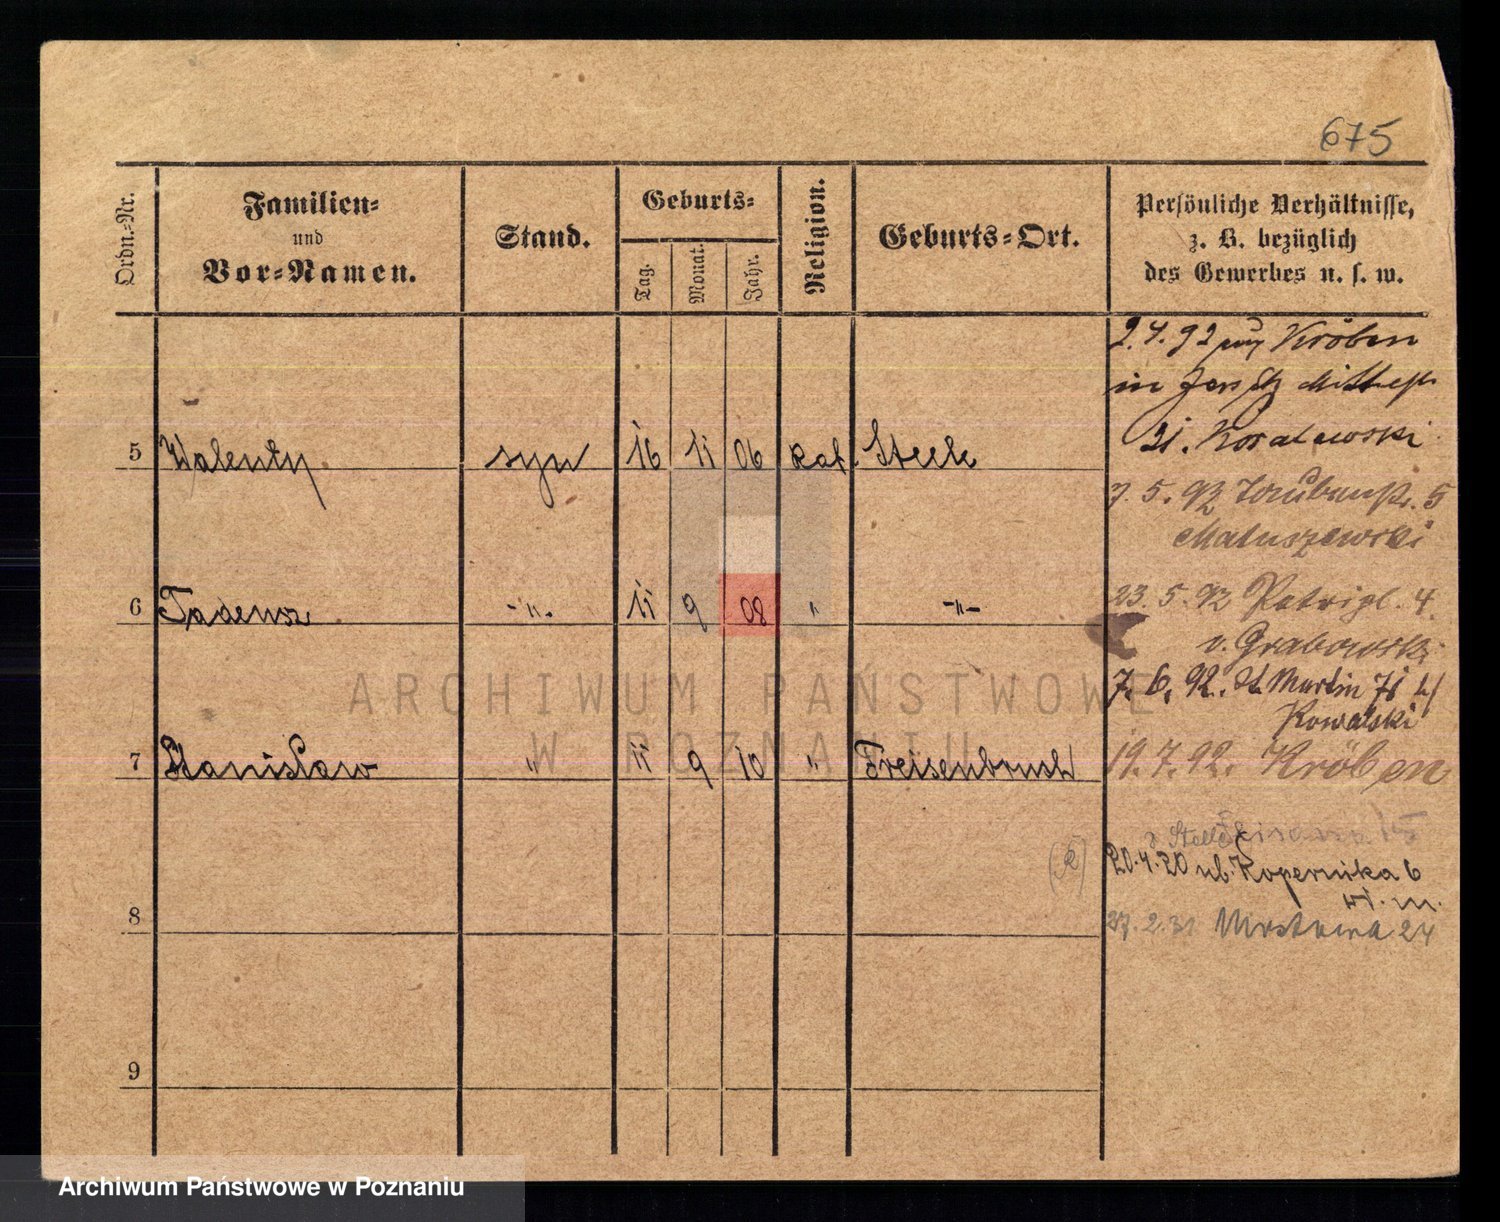 675
Ordn.-Nr.
Familien-
und
Vor-Namen.
Stand.
Geburts-
Tag.
Monat.
Jahr.
Religion.
Geburts-Ort.
Persönliche Verhältnisse,
z. B. bezüglich
des Gewerbes u. s. w.
2.4.92 Kröben
in
Matuszewski
7. 5. 92 5
23. 5. 92 4.
v. Grabowski
7. 6. 92. St. Martin 71
Kowalski
19. 7. 92. Kröben
20.4.20 ul. Kopernika 6
27. 2. 31 24
5 Walenty syn 16 11 06 kat. Steele
6 Tadeusz -"- 11 9 08 " -"-
7 Stanisław " 11 9 10 " Freisenbruch
8
9
ARCHIWUM PAŃSTWOWE
W POZNANIU
Archiwum Państwowe w Poznaniu